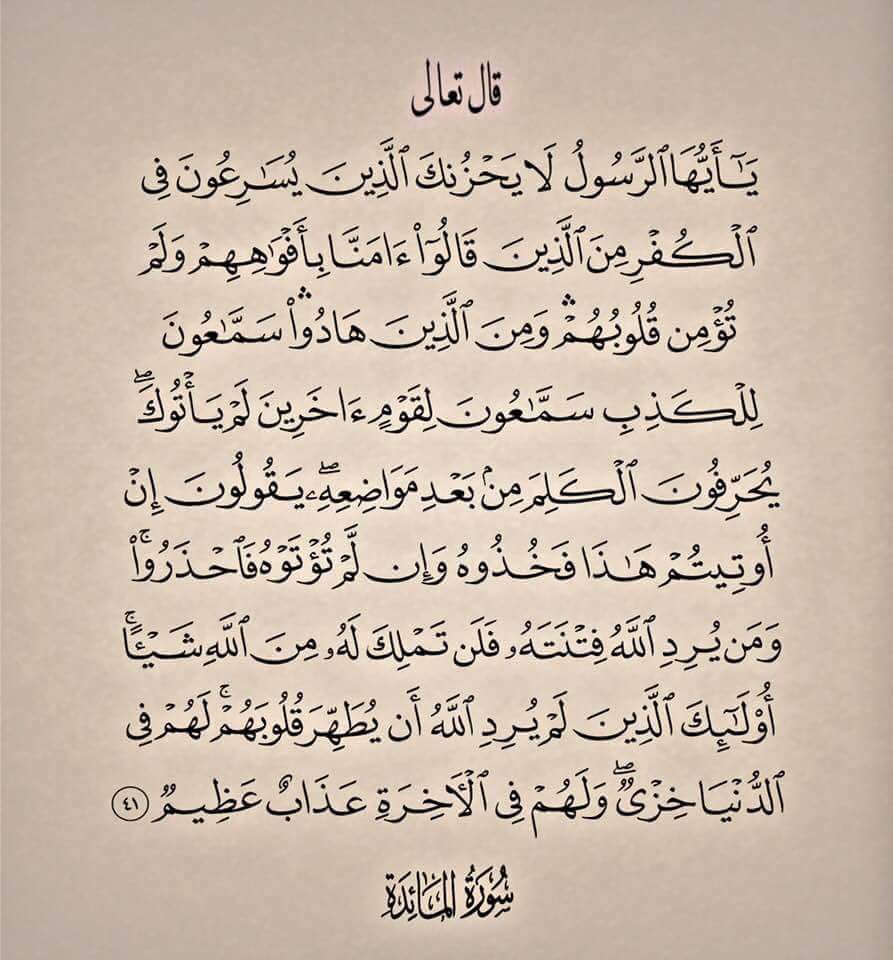 قال تعالى
يَـٰٓأَيُّهَا ٱلرَّسُولُ لَا يَحْزُنكَ ٱلَّذِينَ يُسَـٰرِعُونَ فِى
ٱلْكُفْرِ مِنَ ٱلَّذِينَ قَالُوٓا۟ ءَامَنَّا بِأَفْوَٰهِهِمْ وَلَمْ
تُؤْمِن قُلُوبُهُمْ ۛ وَمِنَ ٱلَّذِينَ هَادُوا۟ ۛ سَمَّـٰعُونَ
لِلْكَذِبِ سَمَّـٰعُونَ لِقَوْمٍ ءَاخَرِينَ لَمْ يَأْتُوكَ ۖ
يُحَرِّفُونَ ٱلْكَلِمَ مِنۢ بَعْدِ مَوَاضِعِهِۦ ۖ يَقُولُونَ إِنْ
أُوتِيتُمْ هَـٰذَا فَخُذُوهُ وَإِن لَّمْ تُؤْتَوْهُ فَٱحْذَرُوا۟ ۚ
وَمَن يُرِدِ ٱللَّهُ فِتْنَتَهُۥ فَلَن تَمْلِكَ لَهُۥ مِنَ ٱللَّهِ شَيْـًٔا ۚ
أُو۟لَـٰٓئِكَ ٱلَّذِينَ لَمْ يُرِدِ ٱللَّهُ أَن يُطَهِّرَ قُلُوبَهُمْ ۚ لَهُمْ فِى
ٱلدُّنْيَا خِزْىٌ ۖ وَلَهُمْ فِى ٱلْـَٔاخِرَةِ عَذَابٌ عَظِيمٌ ٤١
سُورَةُ المَائِدَةِ